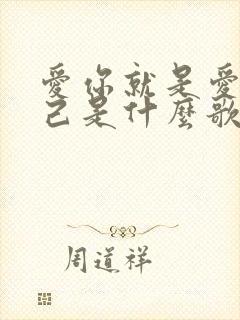 愛你就是愛
己是什麼歌
周道祥